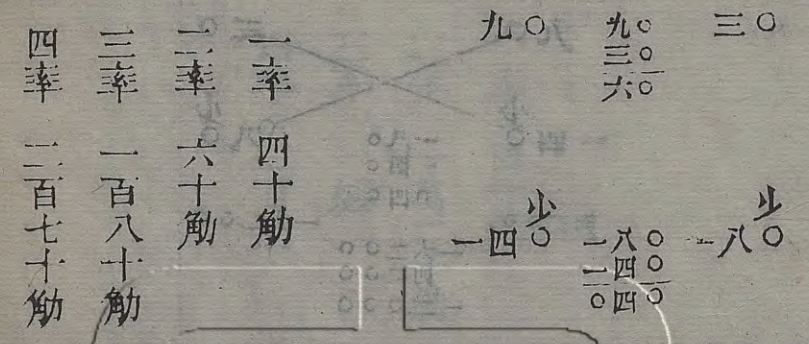 三〇
九〇
三〇
六〇
九〇
少
一八〇
一八〇
一四〇
〇四〇
少
一四〇
一率 四十觔
二率 六十觔
三率 一百八十觔
四率 二百七十觔